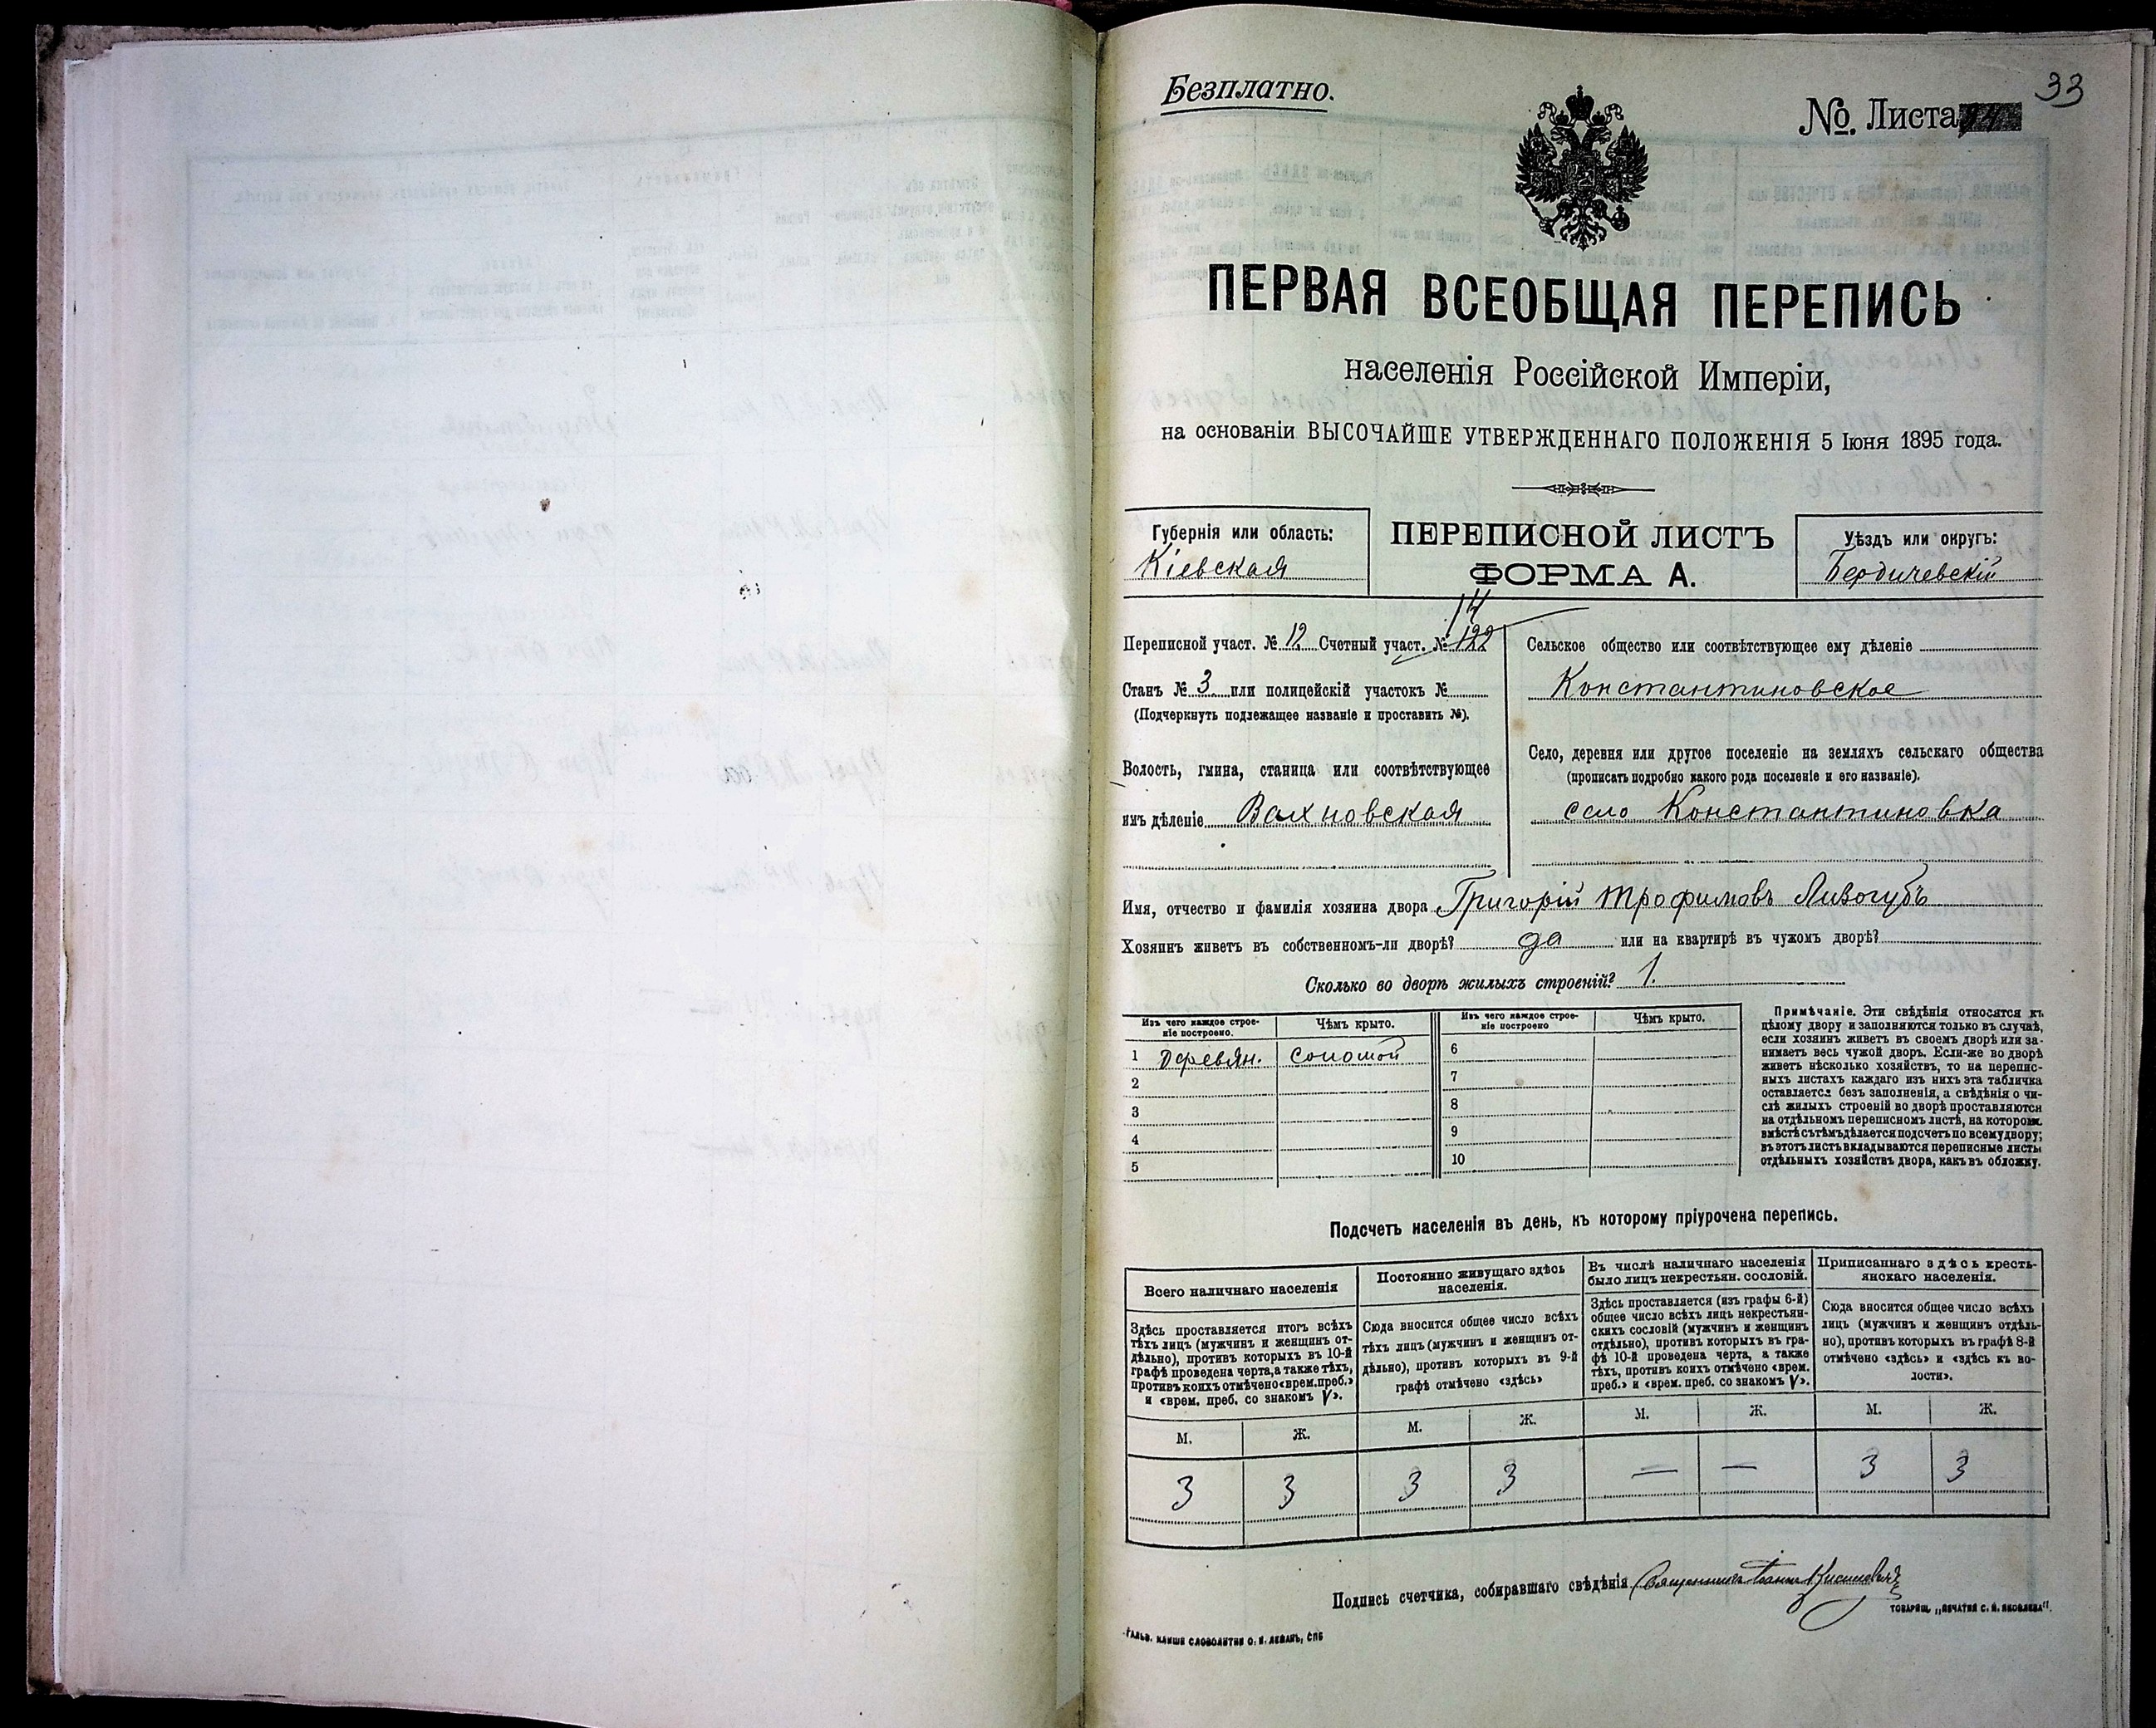 33
Безплатно.
№. Листа
ПЕРВАЯ ВСЕОБЩАЯ ПЕРЕПИСЬ
населенія Россійской Имперіи,
на основаніи ВЫСОЧАЙШЕ УТВЕРЖДЕННАГО ПОЛОЖЕНІЯ 5 Іюня 1895 года.
Губернія или область:
Кіевская
ПЕРЕПИСНОЙ ЛИСТЪ
ФОРМА А.
Уѣздъ или округъ:
Бердичевскій
14
Переписной участ. № 12 Счетный участ. № 122
Станъ № 3 или полицейскій участокъ №
(Подчеркнуть подлежащее названіе и проставить №).
Волость, гмина, станица или соотвѣтствующее
имъ дѣленіе Вахновская
Сельское общество или соотвѣтствующее ему дѣленіе
Константиновское
Село, деревня или другое поселеніе на земляхъ сельскаго общества
(прописать подробно какого рода поселеніе и его названіе).
село Константиновка
Имя, отчество и фамилія хозяина двора Григорій Трофимовъ Лизогубъ
Хозяинъ живетъ въ собственномъ-ли дворѣ? да или на квартирѣ въ чужомъ дворѣ?
Сколько во дворѣ жилыхъ строеній? 1.
Изъ чего каждое строе-
ніе построено.
Чѣмъ крыто.
Изъ чего каждое строе-
ніе построено
Чѣмъ крыто.
1 Деревян. соломой 6
2 7
3 8
4 9
5 10
Примѣчаніе. Эти свѣдѣнія относятся къ
цѣлому двору и заполняются только въ случаѣ,
если хозяинъ живетъ въ своемъ дворѣ или за-
нимаетъ весь чужой дворъ. Если-же во дворѣ
живетъ нѣсколько хозяйствъ, то на перепис-
ныхъ листахъ каждаго изъ нихъ эта табличка
оставляется безъ заполненія, а свѣдѣнія о чи-
слѣ жилыхъ строеній во дворѣ проставляются
на отдѣльномъ переписномъ листѣ, на которомъ
вмѣстѣ съ тѣмъ дѣлается подсчетъ по всему двору;
въ этотъ листъ вкладываются переписные листы
отдѣльныхъ хозяйствъ двора, какъ въ обложку.
Подсчетъ населенія въ день, къ которому пріурочена перепись.
Всего наличнаго населенія
Здѣсь проставляется итогъ всѣхъ
тѣхъ лицъ (мужчинъ и женщинъ от-
дѣльно), противъ которыхъ въ 10-й
графѣ проведена черта, а также тѣхъ,
противъ коихъ отмѣчено «врем. преб.»
и «врем. преб. со знакомъ V».
Постоянно живущаго здѣсь
населенія.
Сюда вносится общее число всѣхъ
тѣхъ лицъ (мужчинъ и женщинъ от-
дѣльно), противъ которыхъ въ 9-й
графѣ отмѣчено «здѣсь»
Въ числѣ наличнаго населенія
было лицъ некрестьян. сословій.
Здѣсь проставляется (изъ графы 6-й)
общее число всѣхъ лицъ некрестьян-
скихъ сословій (мужчинъ и женщинъ
отдѣльно), противъ которыхъ въ гра-
фѣ 10-й проведена черта, а также
тѣхъ, противъ коихъ отмѣчено «врем.
преб.» и «врем. преб. со знакомъ V».
Приписаннаго здѣсь кресть-
янскаго населенія.
Сюда вносится общее число всѣхъ
лицъ (мужчинъ и женщинъ отдѣль-
но), противъ которыхъ въ графѣ 8-й
отмѣчено «здѣсь» и «здѣсь къ во-
лости».
М. Ж. М. Ж. М. Ж. М. Ж.
3 3 3 3 — — 3 3
Подпись счетчика, собиравшаго свѣдѣнія Священникъ Іоаннъ
ТОВАРИЩ. „ПЕЧАТНЯ С. П. ЯКОВЛЕВА".
ГАЛЬВ. КЛИШЕ СЛОВОЛИТНИ О. И. ЛЕМАНЪ, СПБ